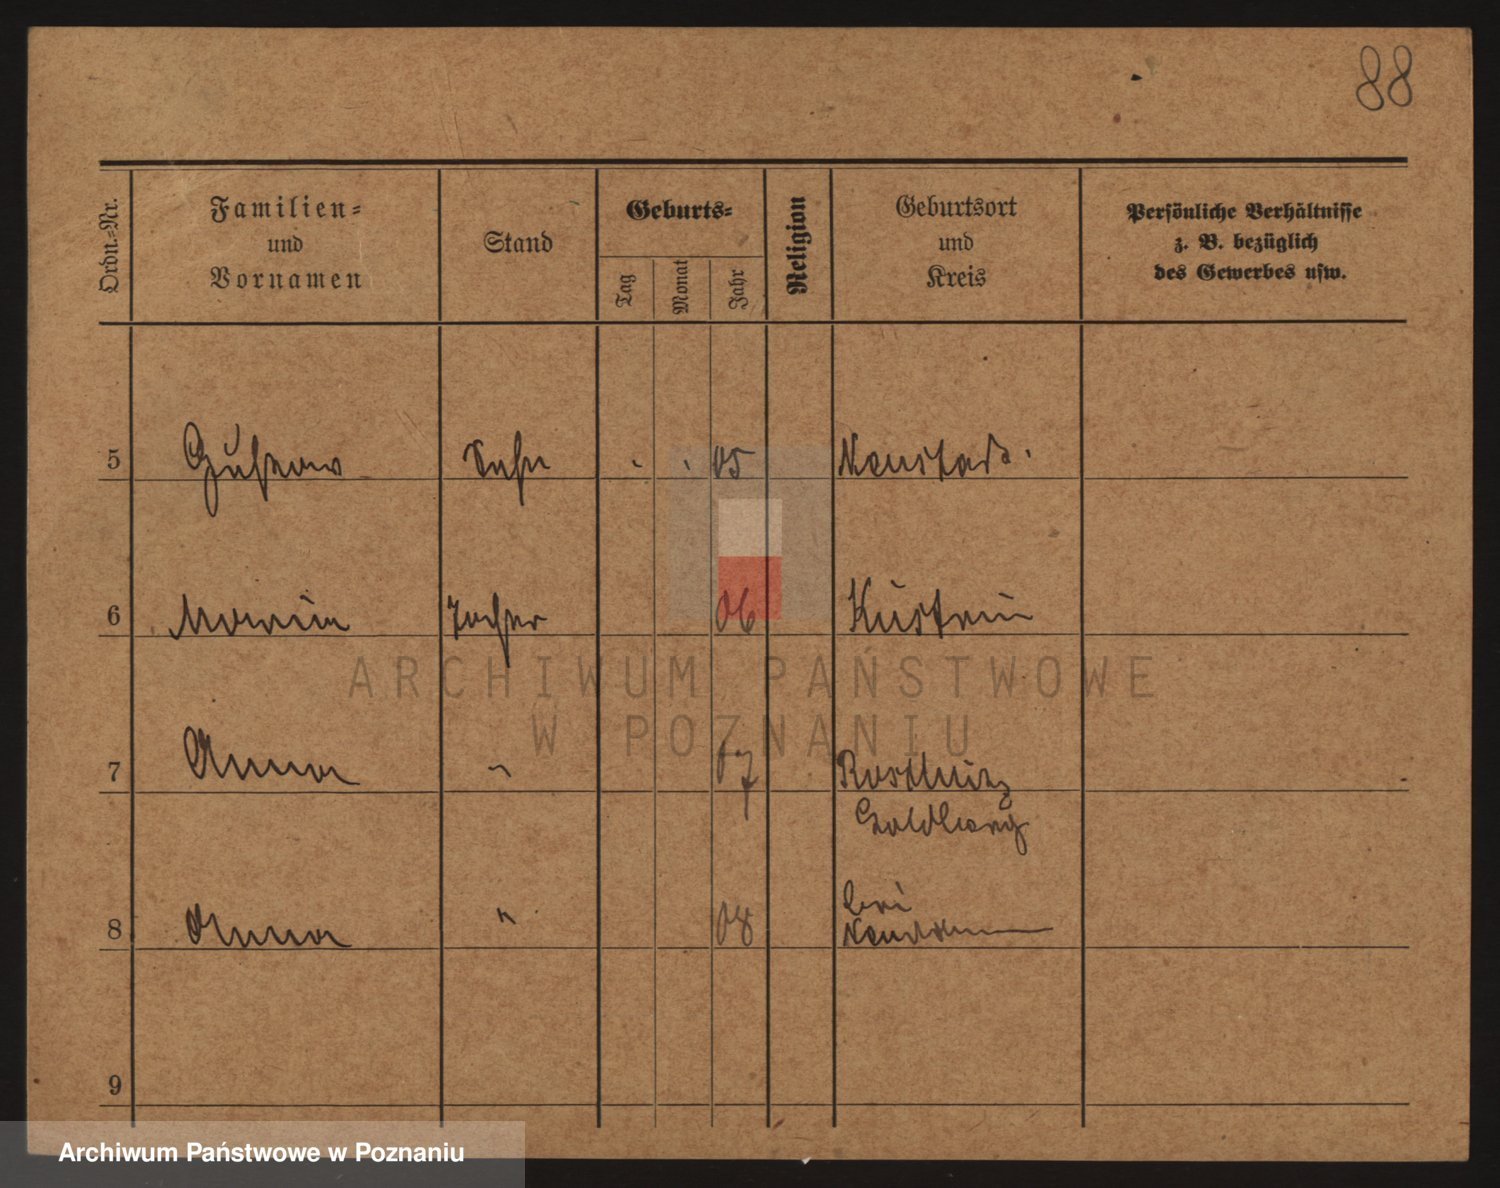 88
Ordn.-Nr.
Familien-
und
Vornamen
Stand
Geburts-
Tag
Monat
Jahr
Religion
Geburtsort
und
Kreis
Persönliche Verhältnisse
z. B. bezüglich
des Gewerbes usw.
5 Gustav Sohn 05 Neustadt.
6 Tochter 06 Küstrin
7 Anna " 07
Goldberg
8 Anna " 08
Neudamm
9
ARCHIWUM PAŃSTWOWE
W POZNANIU
Archiwum Państwowe w Poznaniu